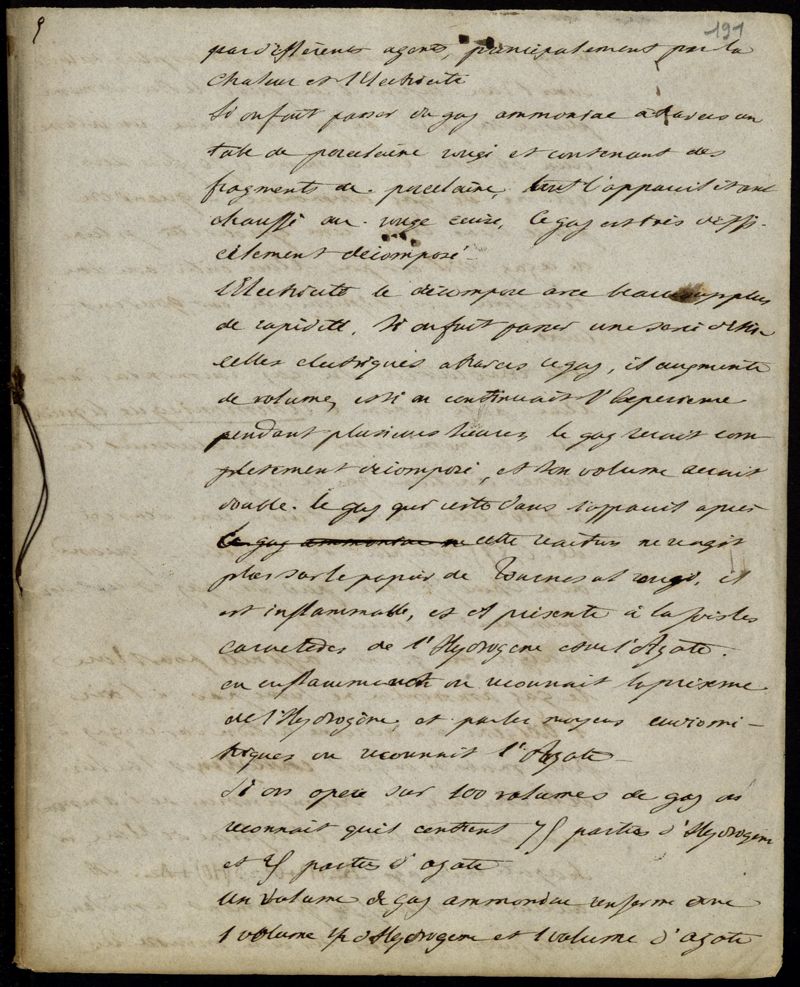 9
191
par différents agents, principalement par la
Chaleur et l'Electricité
Si on fait passer du gaz ammoniac a travers un
tube de porcelaine rougi et contenant des
fragments de porcelaine, tout l'appareil étant
chauffé au rouge cerise, Ce gaz est très diffi-
cilement décomposé
l'Electricité le décompose avec beaucoup plus
de rapidité. Si on fait passer une serie d'etin
celles electriques a travers ce gaz, il augmente
de volume, et si on continuait l'Experience
pendant plusieurs heures, le gaz serait com-
pletement décomposé, et son volume serait
double. le gaz qui reste dans l'appareil après
le gaz ammoniac ne cette reaction ne rougit
plus sur le papier de Tournesol rougi, il
est inflammable, et il présente à la fois les
caracteres de l'Hydrogene et de l'Azote.
en enflammant on reconnait la présence
de l'Hydrogène, et par les moyens eudiomé-
triques on reconnait l'Azote
Si on opere sur 100 volumes de gaz on
reconnait qu'il contient 75 parties d'Hydrogene
et 25 parties d'azote
Un volume de gaz ammoniac renferme donc
1 volume 1/2 d'Hydrogene et 1 volume d'azote